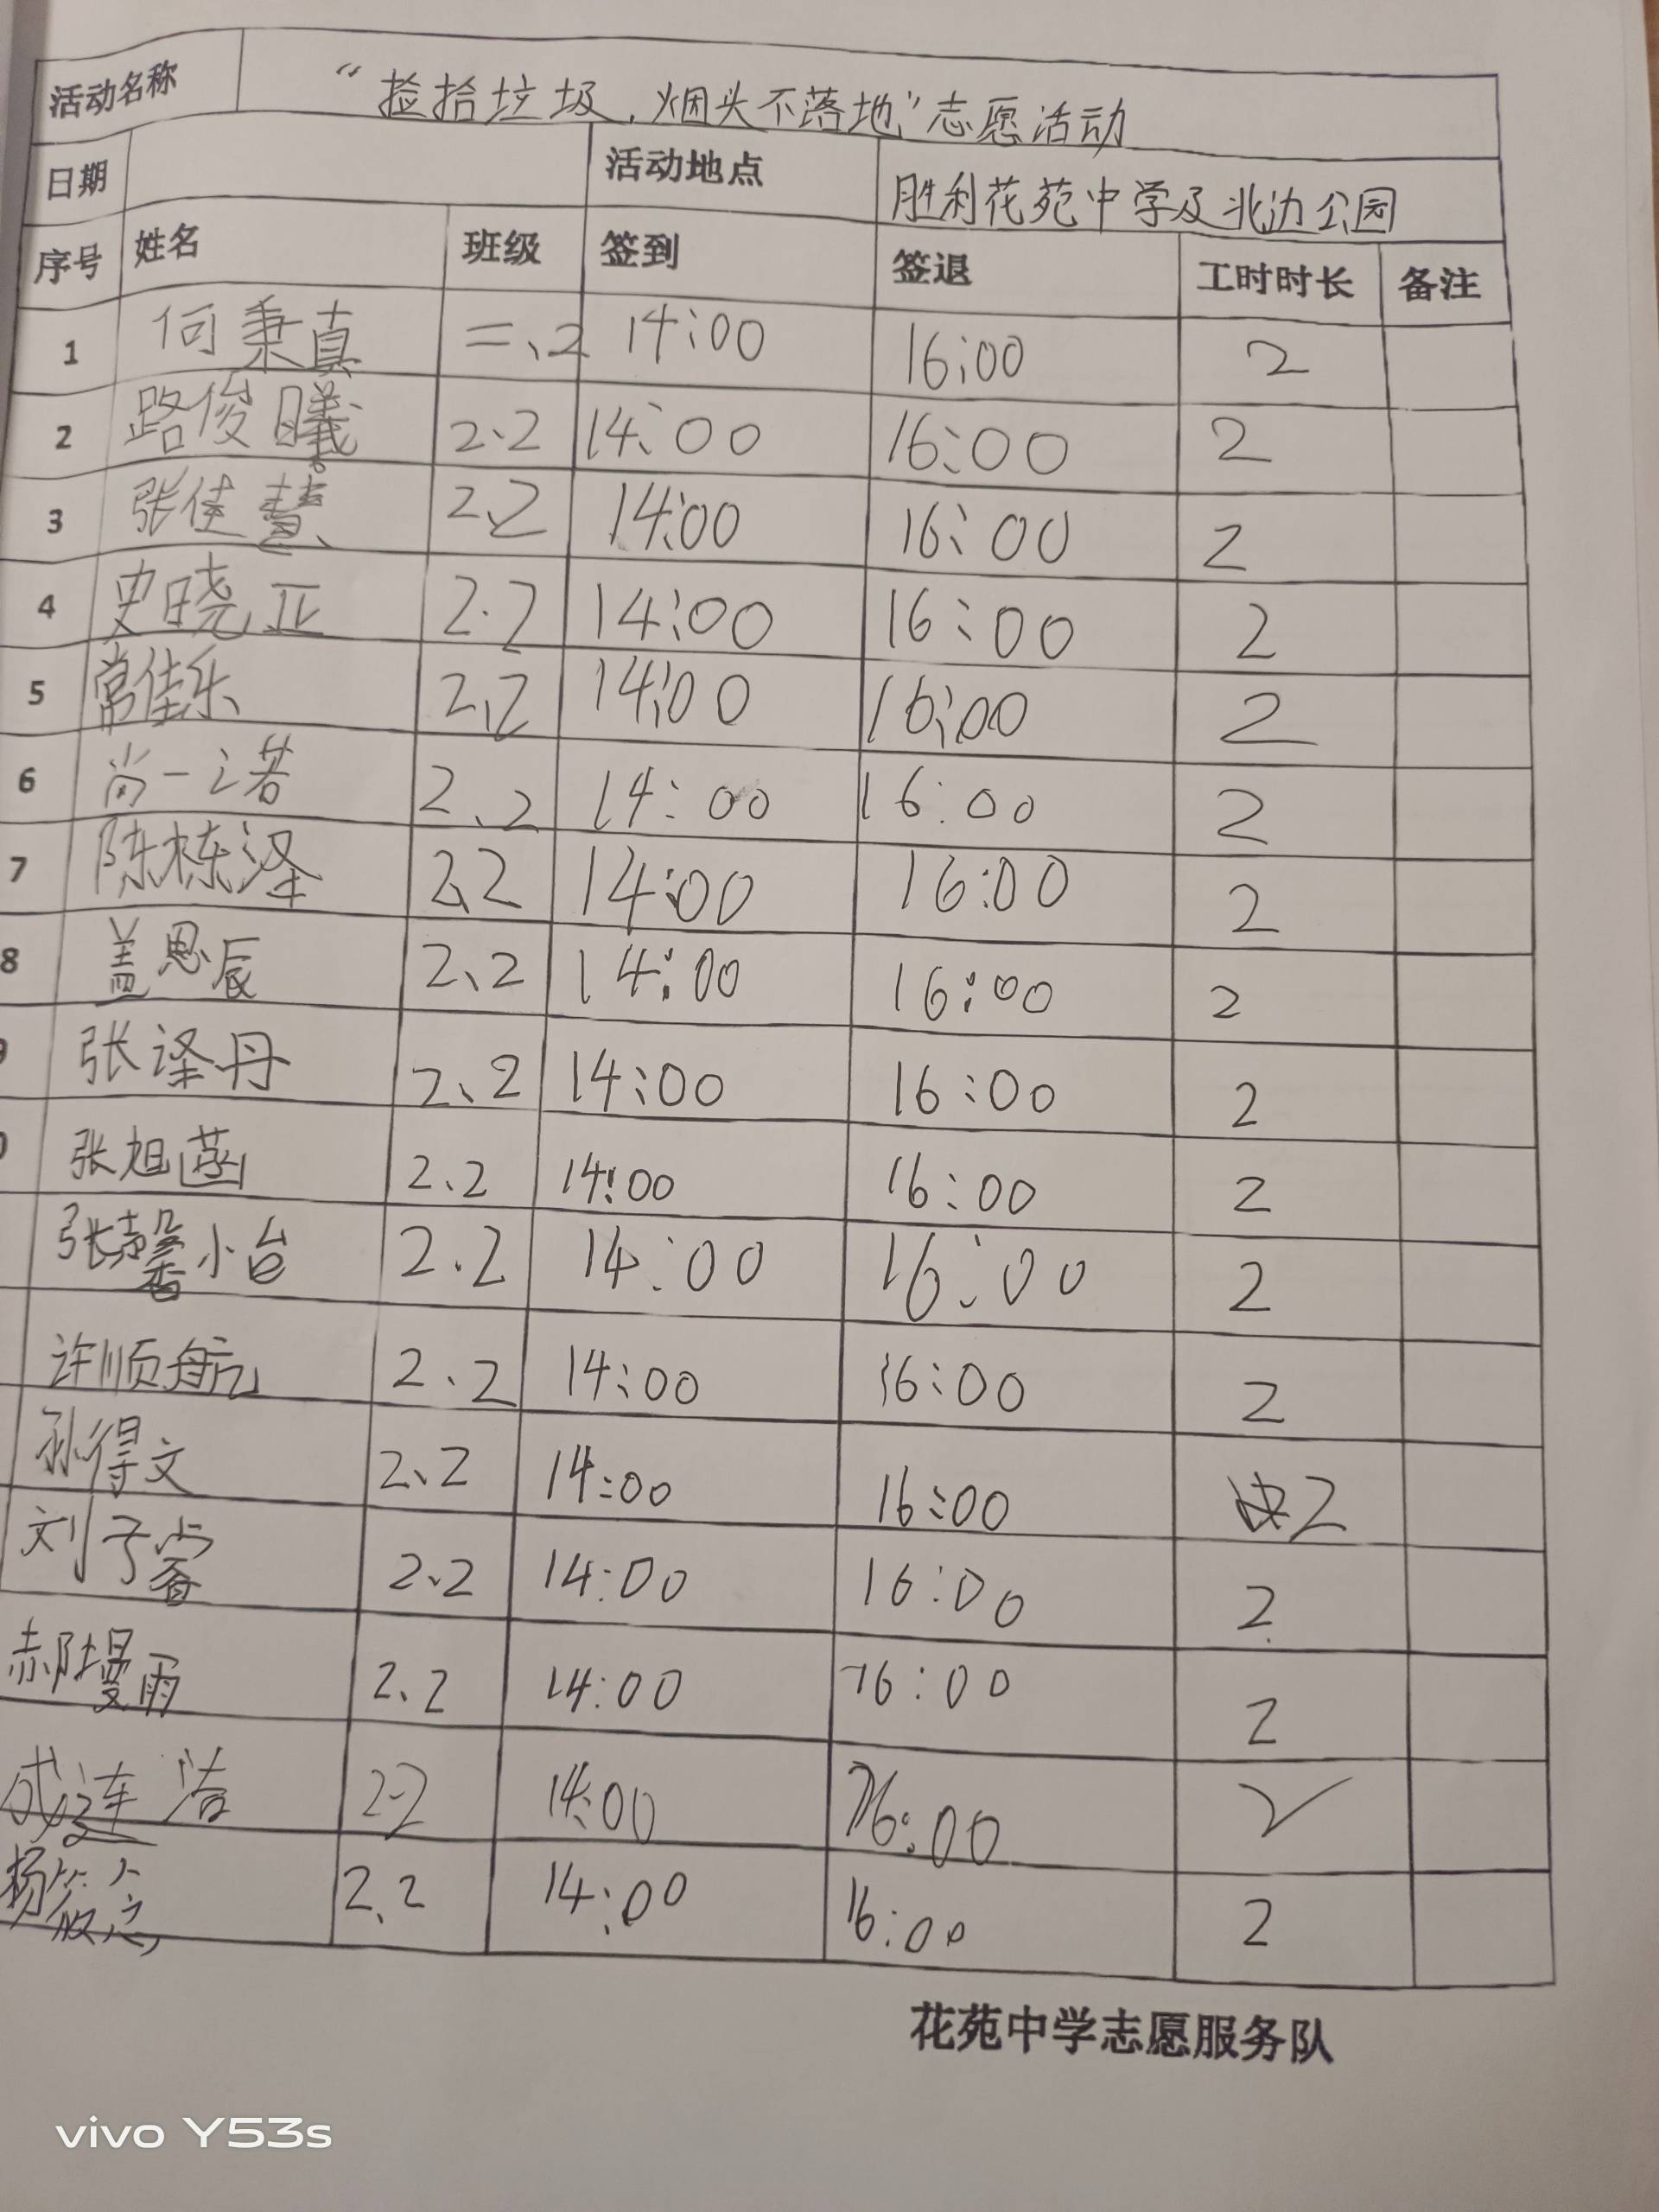 活动名称 “捡拾垃圾，烟头不落地”志愿活动
日期 活动地点 胜利花苑中学及北边公园
序号 姓名 班级 签到 签退 工时时长 备注
1 何秉真 二、2 14:00 16:00 2
2 路俊曦 2.2 14:00 16:00 2
3 张佳慧 2.2 14:00 16:00 2
4 史晓亚 2.2 14:00 16:00 2
5 常佳乐 2.2 14:00 16:00 2
6 尚一之若 2、2 14:00 16:00 2
7 陈栋泽 2.2 14:00 16:00 2
8 盖思辰 2、2 14:00 16:00 2
张译丹 2、2 14:00 16:00 2
张旭菡 2.2 14:00 16:00 2
张馨小台 2.2 14:00 16:00 2
许顺航 2.2 14:00 16:00 2
孙得文 2、2 14:00 16:00 2
刘子 2.2 14:00 16:00 2
郝墁雨 2.2 14:00 16:00 2
成连洁 2.2 14:00 16:00 2
杨筱 2.2 14:00 16:00 2
花苑中学志愿服务队
vivo Y53s